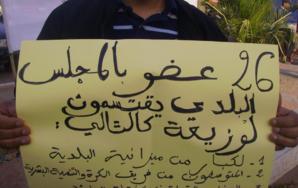 26 عضو بالمجلس
البلدي يقتسمون
لوزيعة كالتالي:
1 - لكبا من ميزانية البلدية
2 - من فريق الكرة والتنمية البشرية